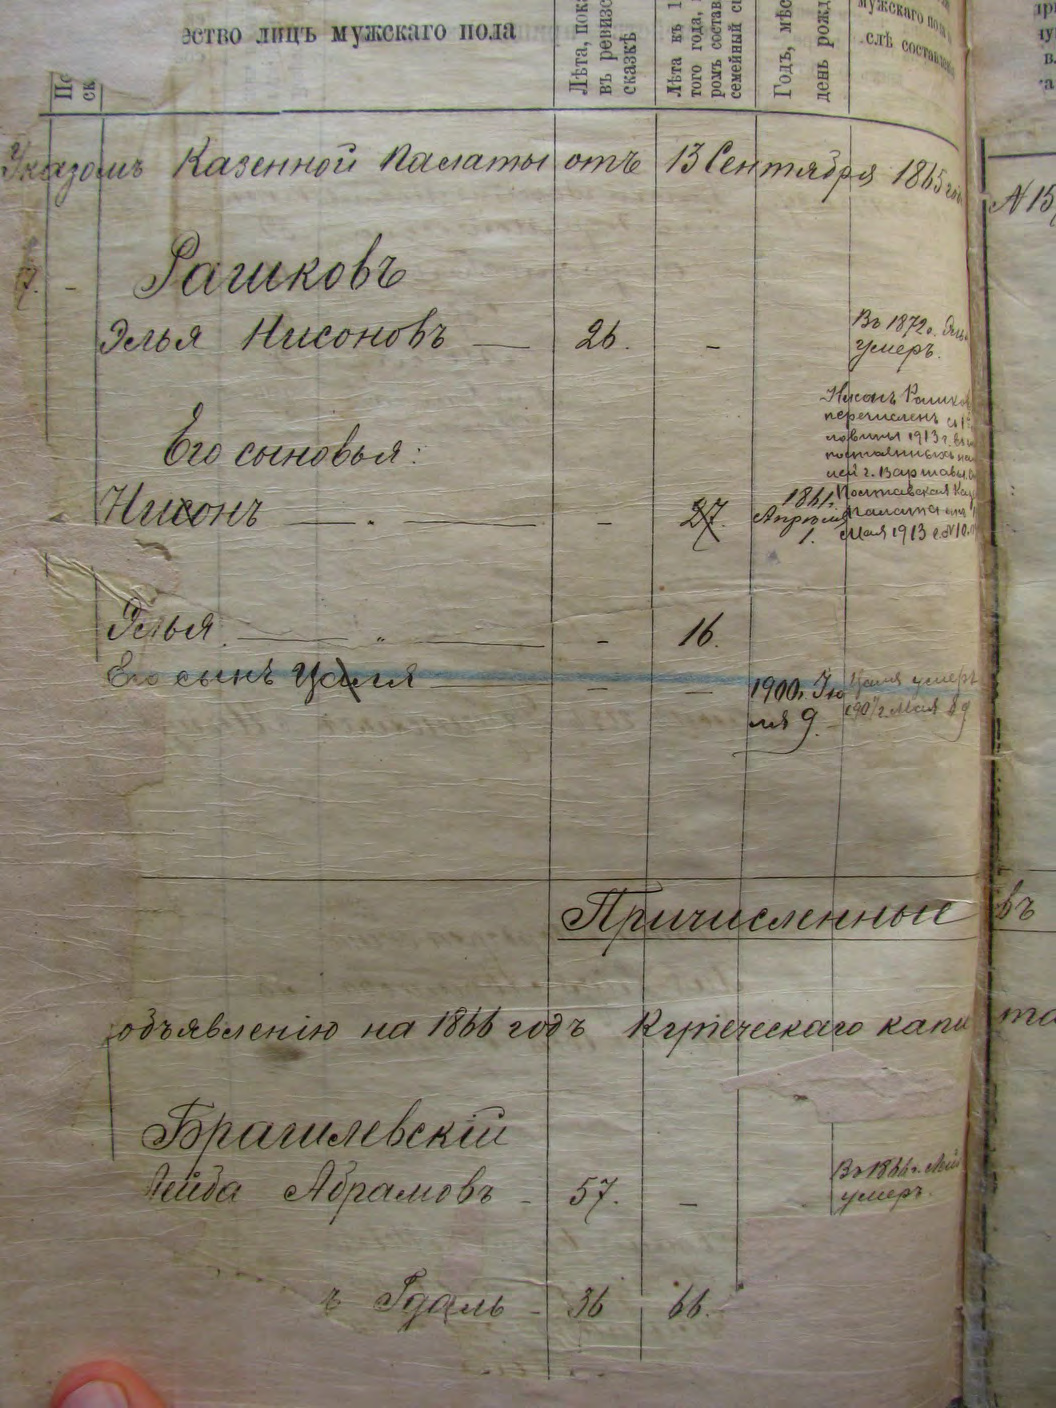 ество лицъ мужскаго пола
Лѣта, пока
въ ревизс
сказкѣ
Лѣта къ 1
того года,
ромъ состав
семейный
Годъ, мѣс
день рожд
мужскаго пола
слѣ составлен
Указомъ Казенной Палаты отъ 13 Сентября 1865 год
N 15
Рашковъ
7. -
Элья Нисоновъ — 26. -
Въ 1872 г. Элья
умеръ.
Его сыновья:
Нисонъ — " — - 27. 1861 г.
Апрѣля
1.
Нисонъ Рашков
перечисленъ съ
ловины 1913 г. въ
постоянныхъ
лей г. Варшавы.
Полтавская Каз
Палата отъ
Мая 1913 г. N 10
Элья — " — - 16.
Его сынъ Цаля — - — 1900 г. Ію
ля 9.
Цаля умеръ
Мая
Причисленные въ
объявленію на 1866 годъ Купеческаго капи та
Брагилевскій
Лейба Абрамовъ - 57. -
Въ 1866 г. Лей
умеръ.
ъ Гдаль - 36 66.